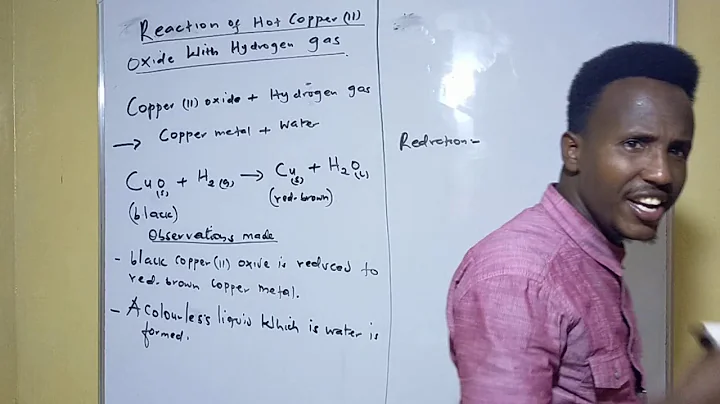 Reaction of Hot Copper (II)
Oxide With Hydrogen gas.
Copper (II) oxide + Hydrogen gas
→ Copper metal + Water
CuO(s) + H2(g) → Cu(s) + H2O(l)
(black) (red-brown)
Observations made
- black copper (II) oxide is reduced to
red-brown copper metal.
- A colourless liquid Which is water is
formed.
Redrotion:-